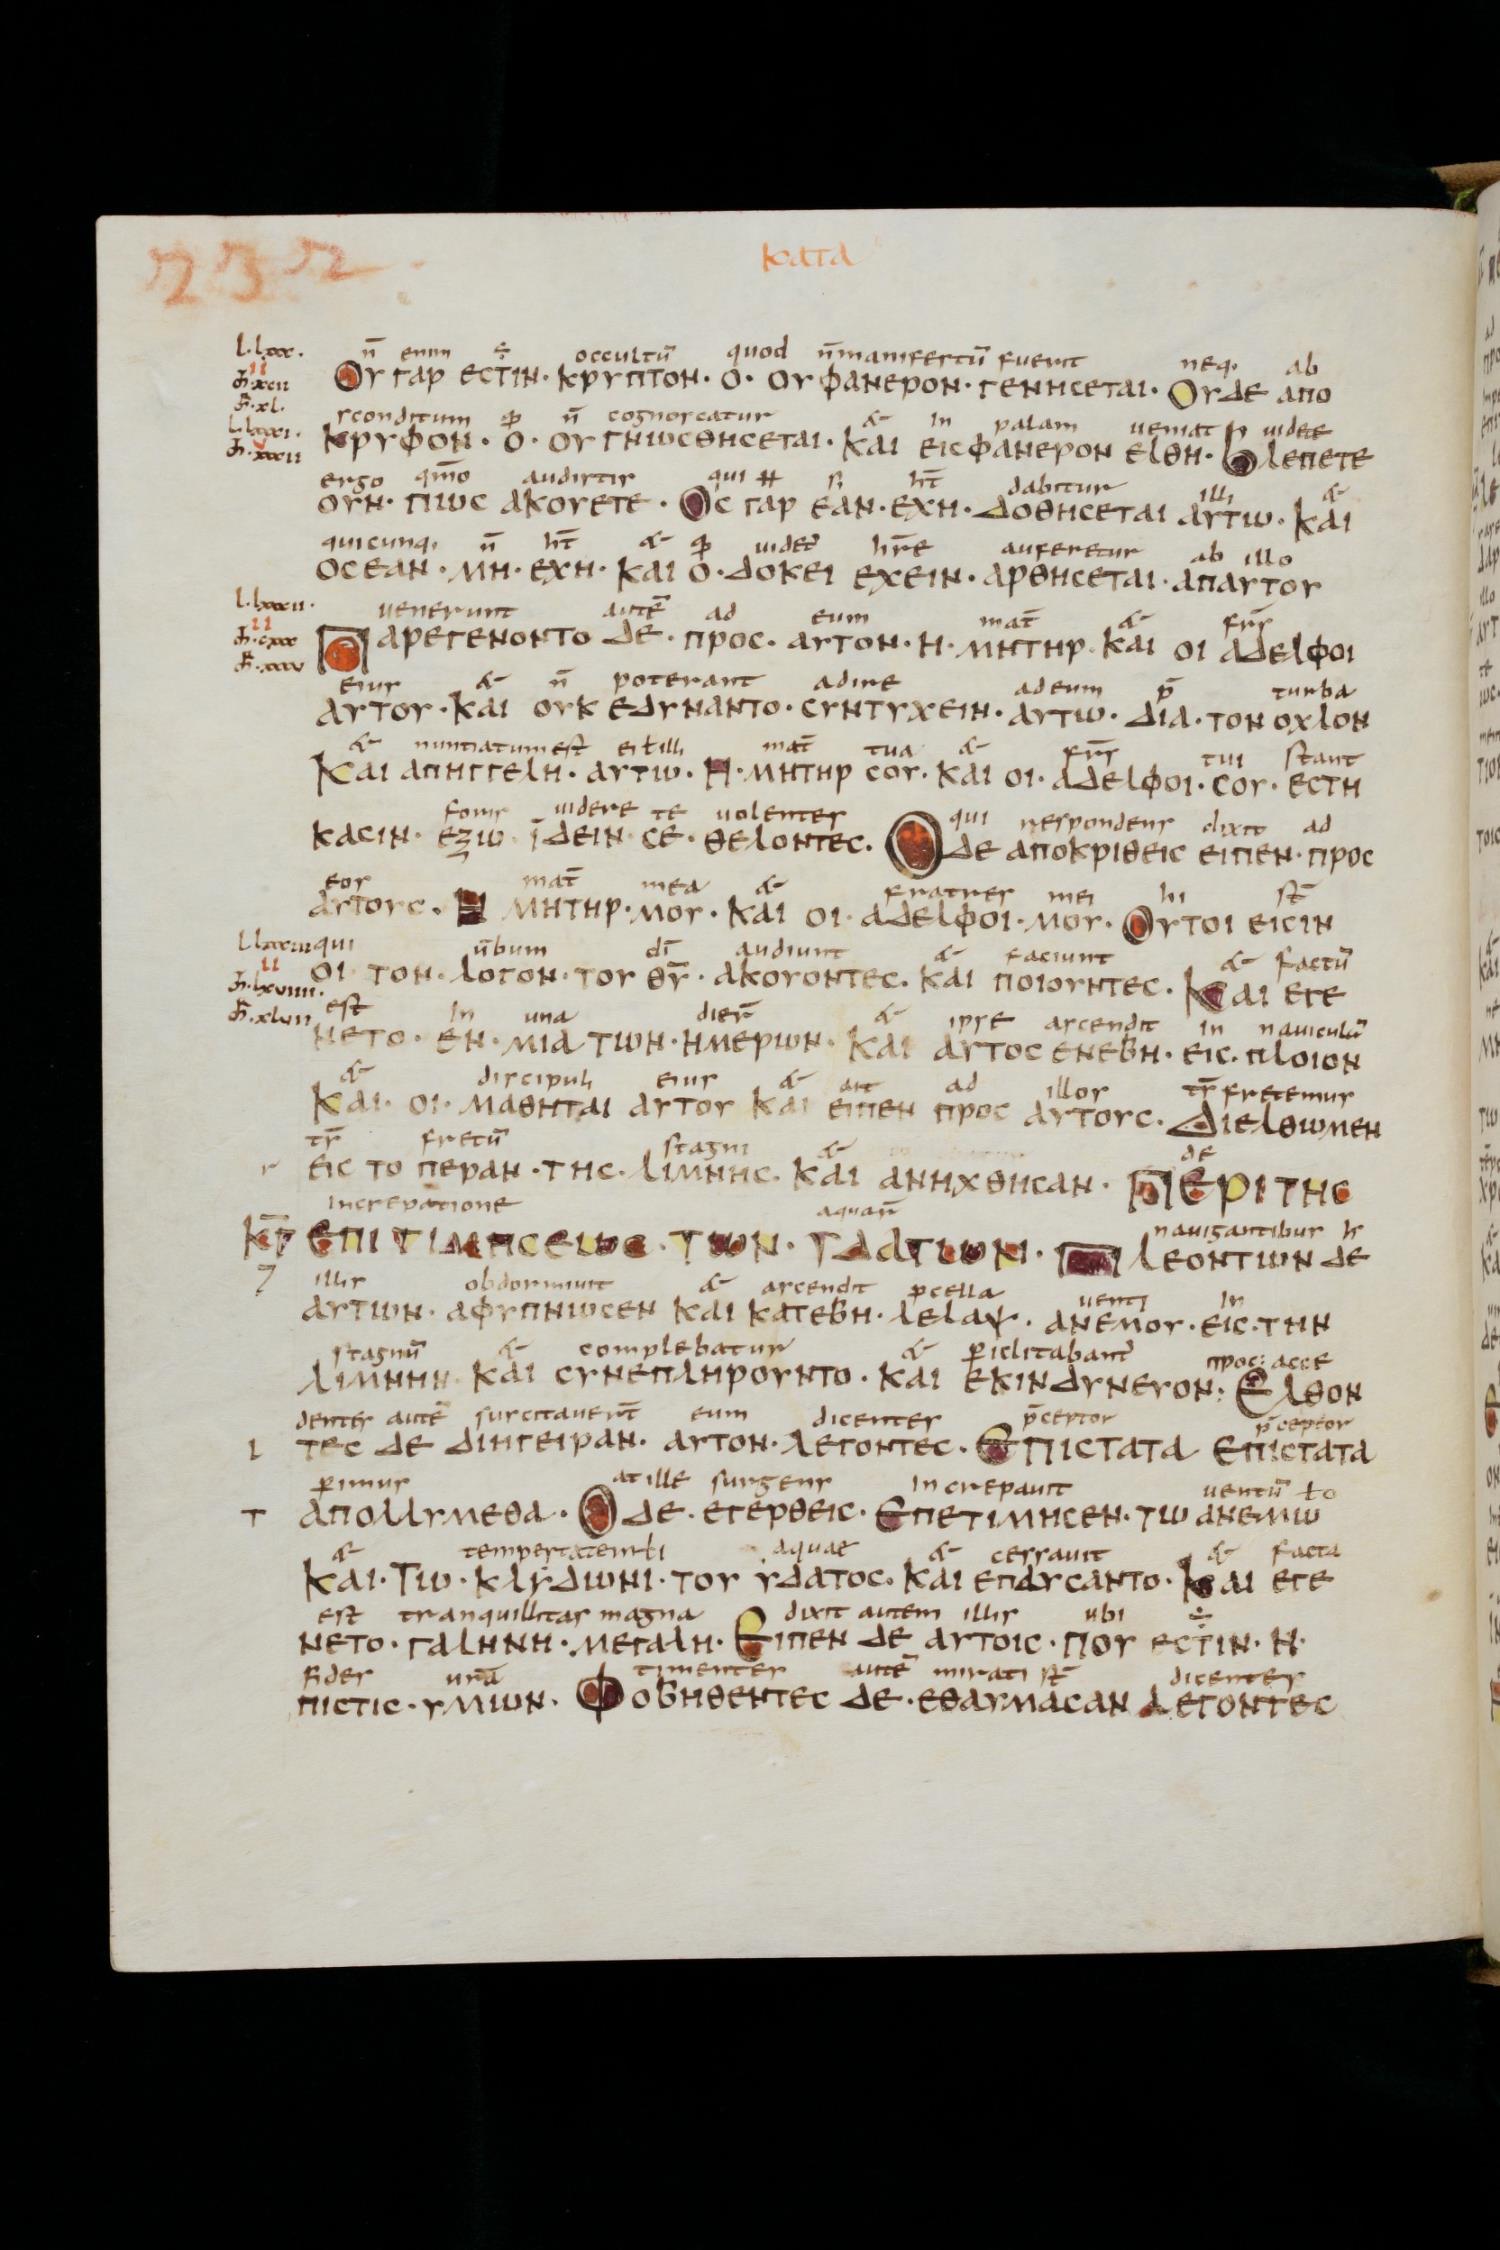 232
κατα
l·lxxx·
n̄ enim ÷ occultū quod n̄manifestū fuerit neq· ab
Ουγαρ εcτιν· κρυπτον· ο· ουφανερον· γενηcεται· Ουδε απο
absconditum n̄ cognoscatur & in palam ueniat uidete
κρυφον· ο· ουγνωcθηcεται· και ειcφανερον ελθη· βλεπετε
ergo qm̄o auditis qui si ht̄ dabitur illi &
ουν· πωc ακουετε· Οc γαρ εαν· εχη· Δοθηcεται αυτω· και
quicunq· n̄ ht̄ & uidet̄ hr̄e auferetur ab illo
οcεαν· μη· εχη· και ο· δοκει εχειν· αρθηcεται· απαυτου
l·lxxxii·
uenerunt autē ad eum mat̄ & fr̄s
Παρεγενοντο δε· προc· αυτον· η· μητηρ· και οι αδελφοι
eius & n̄ poterant adire adeum p̄ turba
αυτου· και ουκ εδυναντο· cυντυχειν· αυτω· δια· τον οχλον
& nuntiatumest ei ł illi mat̄ tua & fr̄s tui stant
Και απηγγελη· αυτω· Η· μητηρ cου· και οι· αδελφοι· cου· εcτη
foris uidere te uolentes qui respondens dixit ad
καcιν· εξω· ϊδειν· cε· θελοντεc. Ο δε αποκριθειc ειπεν· προc
eos mat̄ mea & fratres mei hi st̄
αυτουc. Η μητηρ· μου· και οι· αδελφοι· μου· Ουτοι ειcιν
qui ūbum dī audiunt & faciunt & factū
οι· τον· λογον· του θῡ· ακουοντεc. και ποιουντεc. Και εγε
est in una dierū & ipse ascendit in nauiculā
νετο· εν· μια των· ημερων· και αυτοc ενεβη· ειc· πλοιον
& discipuli eius & ait ad illos tr̄fretemus
Και· οι· μαθηται αυτου και ειπεν προc αυτουc. Διελθωμεν
tr̄ fretū stagni & de
ειc το περαν· τηc· λιμνηc. και ανηχθηcαν· Περι τηc
increpatione aquarū nauigantibus
επιτιμηcεωc· των· υδατων· Πλεοντων δε
illis obdormiuit & ascendit pcella uenti in
αυτων· αφυπνωcεν και κατεβη· λελαψ· ανεμου· ειc· την
stagnū & complebatur & piclitabant̄ προc: acce
λιμνην και cυνεπληρουντο· και εκινδυνευον: Ελθον
dentes autē suscitauerūt eum dicentes p̄ceptor p̄ceptor
τεc δε διηγειραν· αυτον· λεγοντεc· Επιcτατα Επιcτατα
pimus at ille surgens increpauit uentū ł o
απολλυμεθα· Ο δε· εγερθειc· Επετιμηcεν· τω ανεμω
& tempestatem ł i aquae & cessauit & facta
και· Τω· κλυδωνι· του υδατοc. και επαυcαντο· Και εγε
est tranquillitas magna dixit autem illis ubi ÷
νετο· γαληνη· μεγαλη· Ειπεν δε αυτοιc· που εcτιν· η·
fides ur̄a timentes autē mirati st̄ dicentes
πιcτιc· υμων· Φοβηθεντεc δε· εθαυμαcαν λεγοντεc